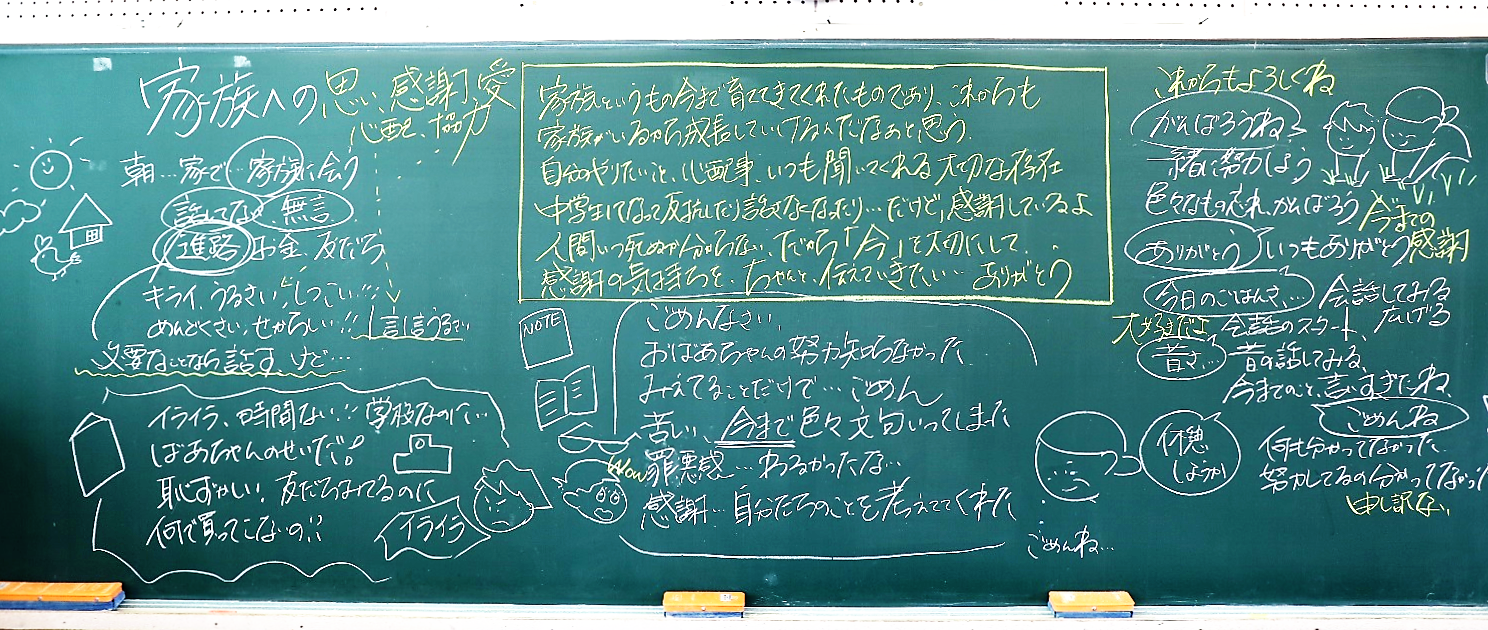 家族への思い、感謝、愛
心配、協力
朝…家で…家族に会う
話してない 無言
進路 お金、友だち
キライ、うるさい、しつこい!!
めんどくさい、せからしい!!
必要なことなら話すけど…
イライラ、時間ない!! 学校なのに…
ばあちゃんのせいだ!
恥ずかしい! 友だちみてるのに
何で買ってこないの!?
イライラ
家族というもの今まで育ててきてくれたものであり、これからも
家族がいるから成長していけるんだなあと思う。
自分のやりたいこと、心配事、いつも聞いてくれる大切な存在
中学生になって反抗したり話さなくなったり…だけど、感謝しているよ
人間いつ死ぬか分からない、だから「今」を大切にして、
感謝の気持ちを、ちゃんと、伝えていきたい…ありがとう
NOTE
ごめんなさい、
おばあちゃんの努力知らなかった
みえてることだけで…ごめん
苦しい、今まで色々文句いってしまた
罪悪感…わるかったな…
感謝…自分たちのことを考えててくれた
これからもよろしくね
がんばろうね
一緒に努力しよう
色々なもの忘れ、がんばろう
今までの
感謝
ありがとう いつもありがとう
今日のごはんさ… 会話してみる
広げる
大好きだよ 会話のスタート、
昔さ… 昔の話してみる、
今までのこと、言いすぎたね
ごめんね
休憩
しようか
何も分かってなかった
努力してるの分かってなかった
申し訳ない
ごめんね…